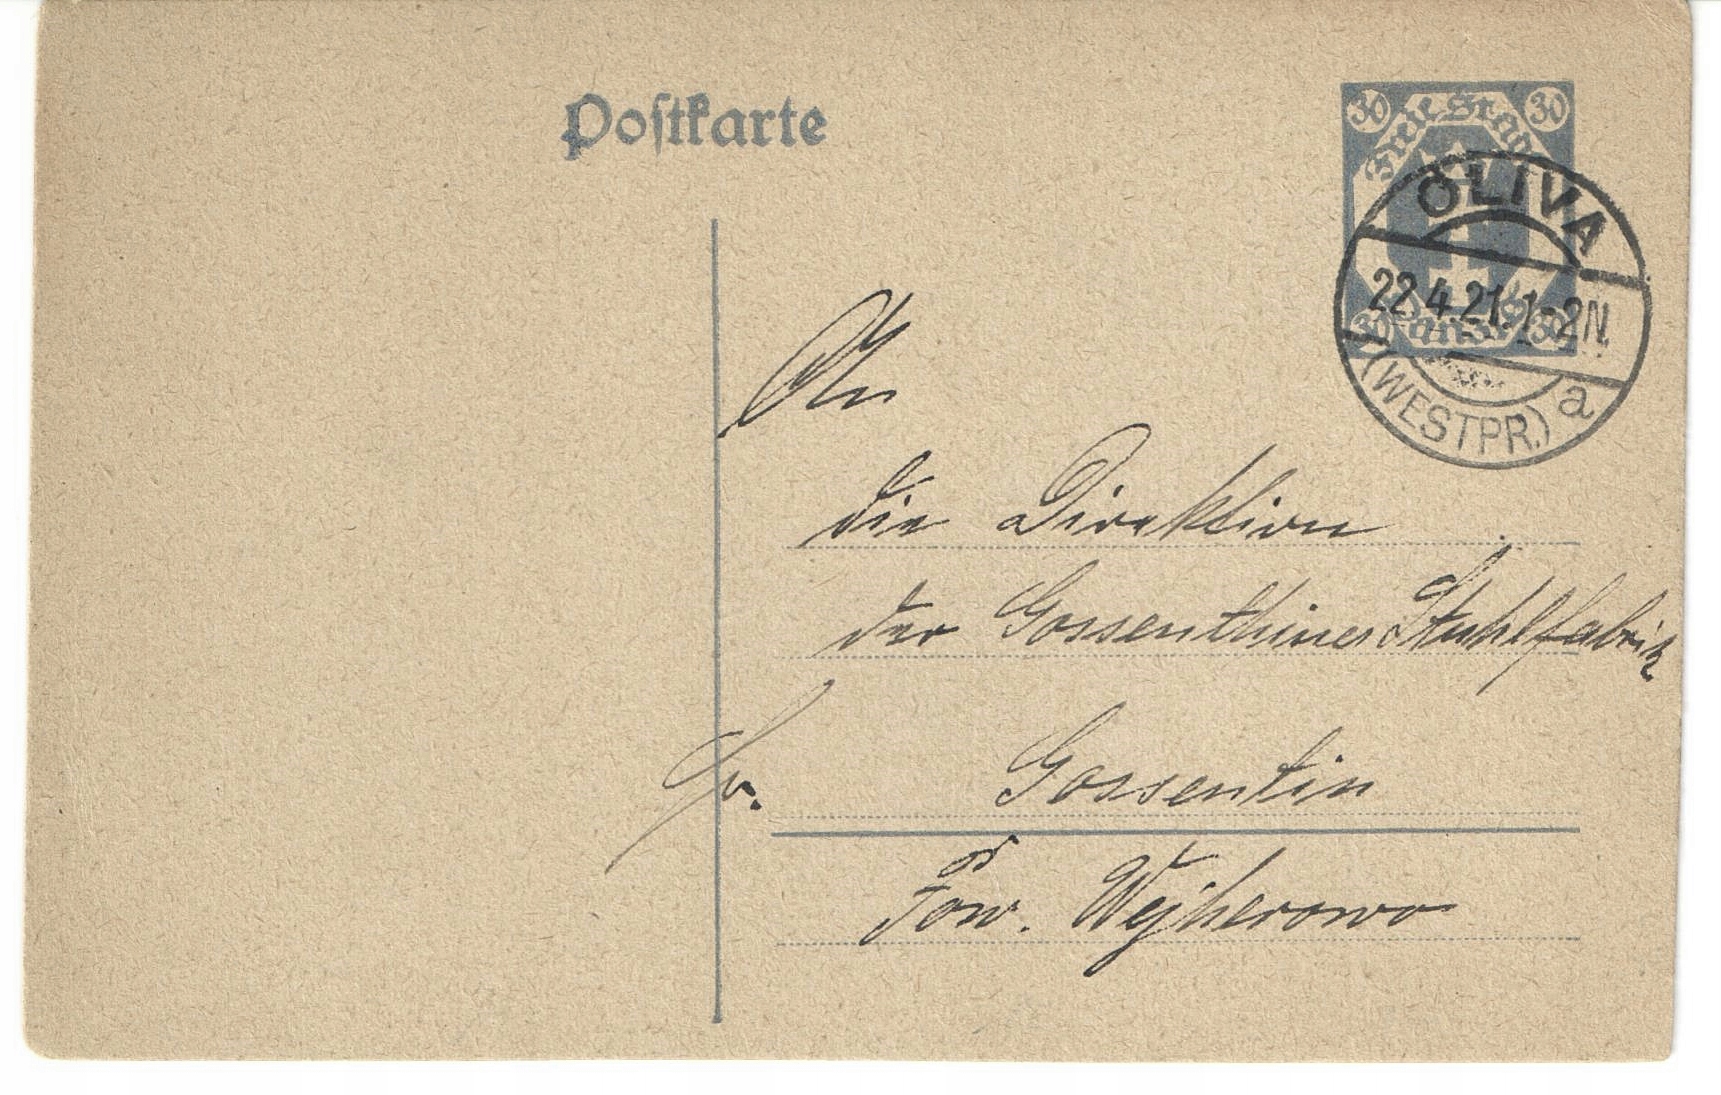 Postkarte
30 30
Freie Stadt
Danzig
30 30
OLIVA
22.4.21.1-2N.
(WESTPR.) a
An
die Direktion
der Gossenthiner Stuhlfabrik
Gossentin
Pow. Wejherowo